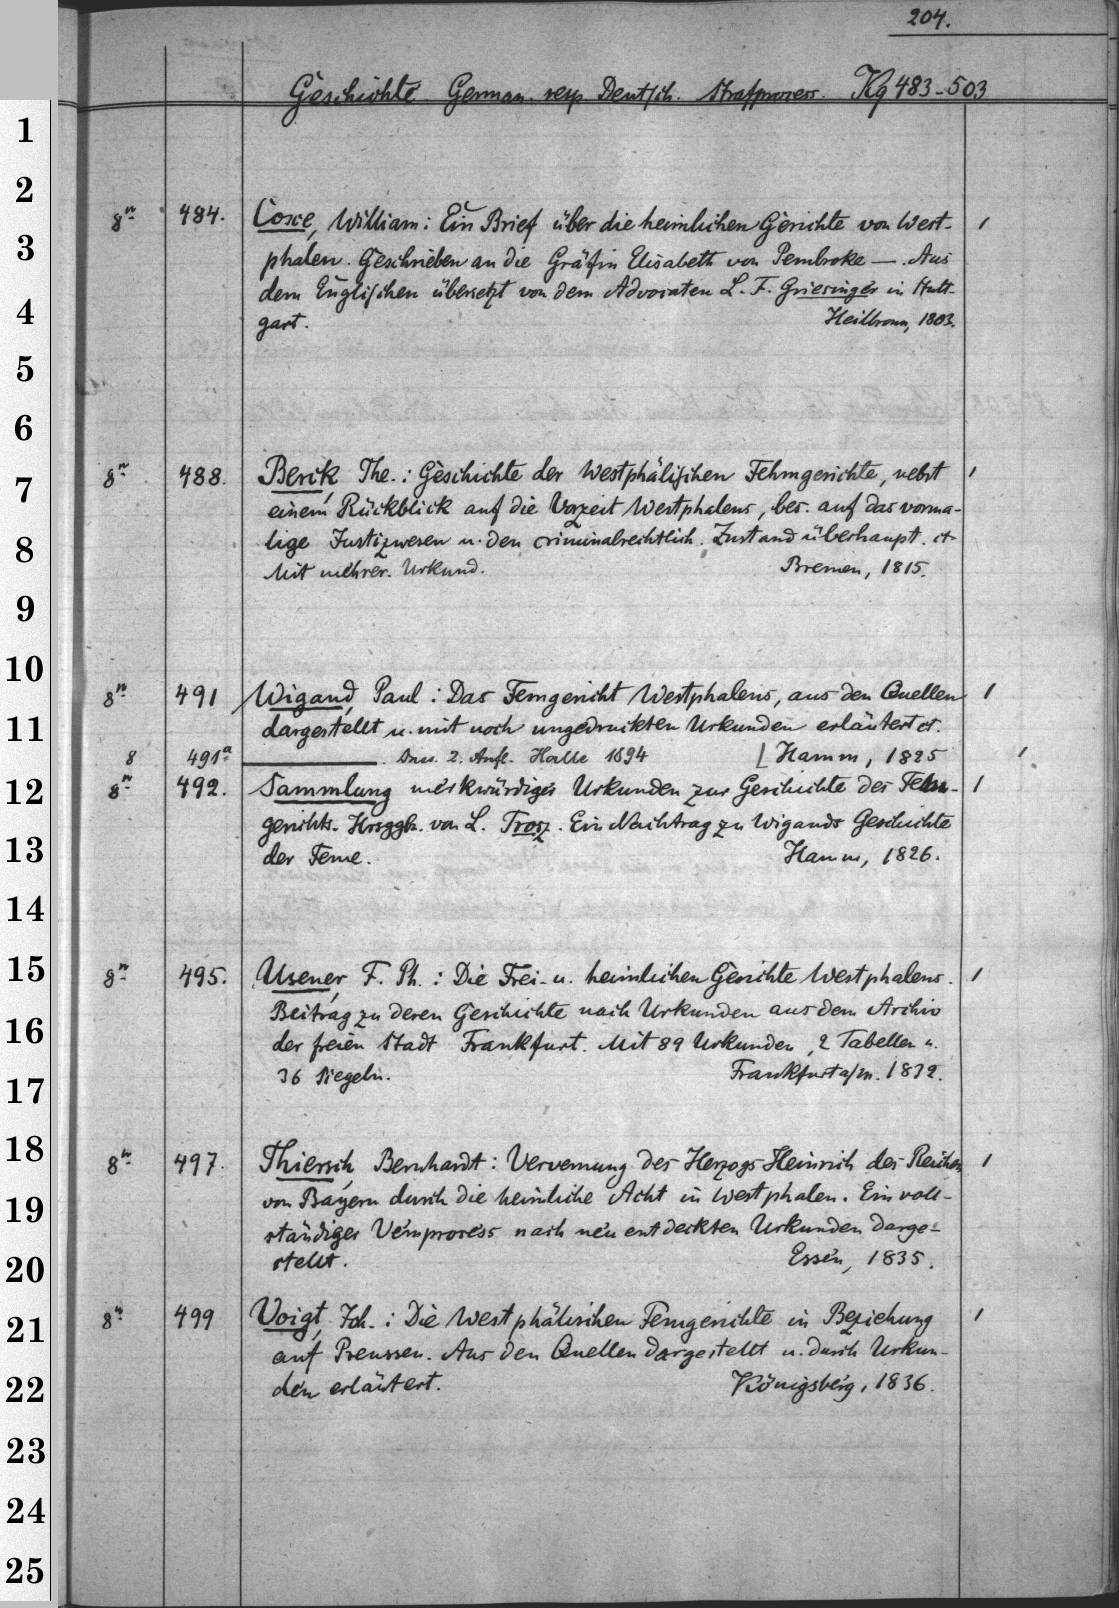 204.
Geschichte German. resp Deutsch. Strafprocess. Kg 483-503
1
2
8º 484. Coxe, William: Ein Brief über die heimlichen Gerichte von West- 1
3
phalen. Geschrieben an die Gräfin Elisabeth von Pembroke —. Aus
dem Englischen übersetzt von dem Advocaten L. F. Griesinger in Stutt-
4
gart. Heilbronn, 1803.
5
6
8º 488. Berck, The.: Geschichte der Westphälischen Fehmgerichte, nebst 1
7
einem Rückblick auf die Vorzeit Westphalens, bes. auf das vorma-
lige Justizwesen u. den criminalrechtlich. Zustand überhaupt. et
8
Mit mehrer. Urkund. Bremen, 1815.
9
10
8º 491 Wigand, Paul: Das Femgericht Westphalens, aus den Quellen 1
11
dargestellt u. mit noch ungedruckten Urkunden erläutert et.
8 491a ———. Dass. 2. Aufl. Halle 1894 [ Hamm, 1825 1
12
8º 492. Sammlung merkwürdiger Urkunden zur Geschichte des Fehm- 1
gerichts. Hrsggb. von L. Trosz. Ein Nachtrag zu Wigands Geschichte
13
der Feme. Hamm, 1826.
14
15
8º 495. Usener, F. Ph.: Die Frei- u. heimlichen Gerichte Westphalens. 1
Beitrag zu deren Geschichte nach Urkunden aus dem Archiv
16
der freien Stadt Frankfurt. Mit 89 Urkunden, 2 Tabellen u.
17
36 Siegeln. Frankfurt a/M. 1832.
18
8º 497. Thiersch, Bernhardt: Vervemung des Herzogs Heinrich des Reichen 1
19
von Bayern durch die heimliche Acht in Westphalen. Ein voll-
ständiger Vemprocess nach neu entdeckten Urkunden darge-
20
stellt. Essen, 1835.
21
8º 499 Voigt, Joh.: Die Westphälischen Femgerichte in Beziehung 1
auf Preussen. Aus den Quellen dargestellt u. durch Urkun-
22
den erläutert. Königsberg, 1836.
23
24
25